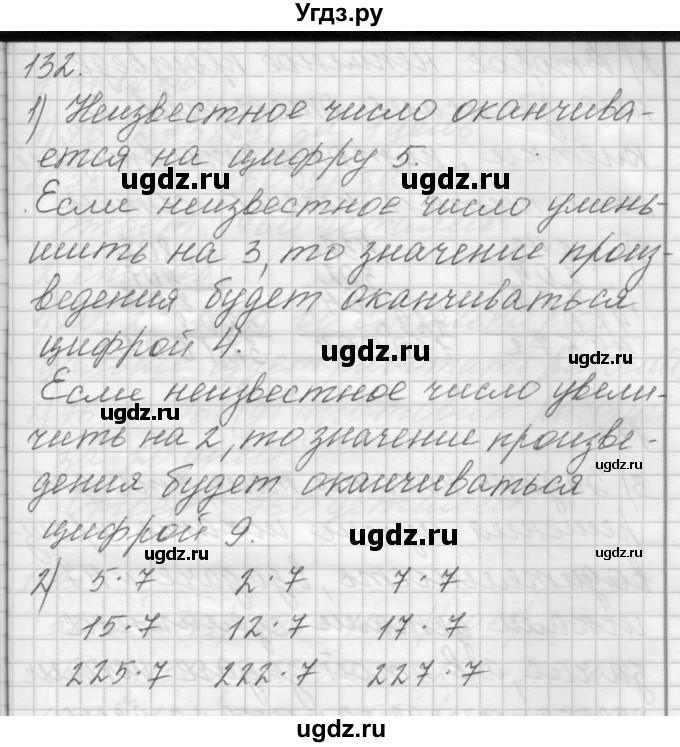 Угдз.ру
132.
1) Неизвестное число оканчива-
ется на цифру 5.
ugdz.ru
Если неизвестное число умень-
шить на 3, то значение произ-
ugdz.ru
ведения будет оканчиваться
цифрой 4.
ugdz.ru
ugdz.ru
Если неизвестное число увели-
ugdz.ru
чить на 2, то значение произве-
ugdz.ru
дения будет оканчиваться
цифрой 9.
ugdz.ru
ugdz.ru
2) 5·7 2·7 7·7
15·7 12·7 17·7
225·7 222·7 227·7
ugdz.ru